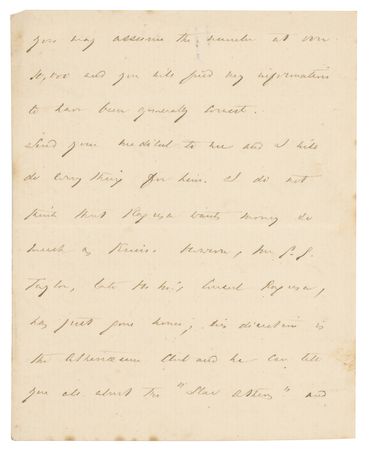 you may assume the number at over
and you will find my information
to have been generally correct.
Send your medical to me and I will
do everything for him. I do not
think that Ragusa wants money so
much as However, Mr. P. J.
Taylor, late H. M.'s Consul Ragusa,
has just gone home; his direction is
the Athenaeum Club and he can tell
you all about the "Slav" and